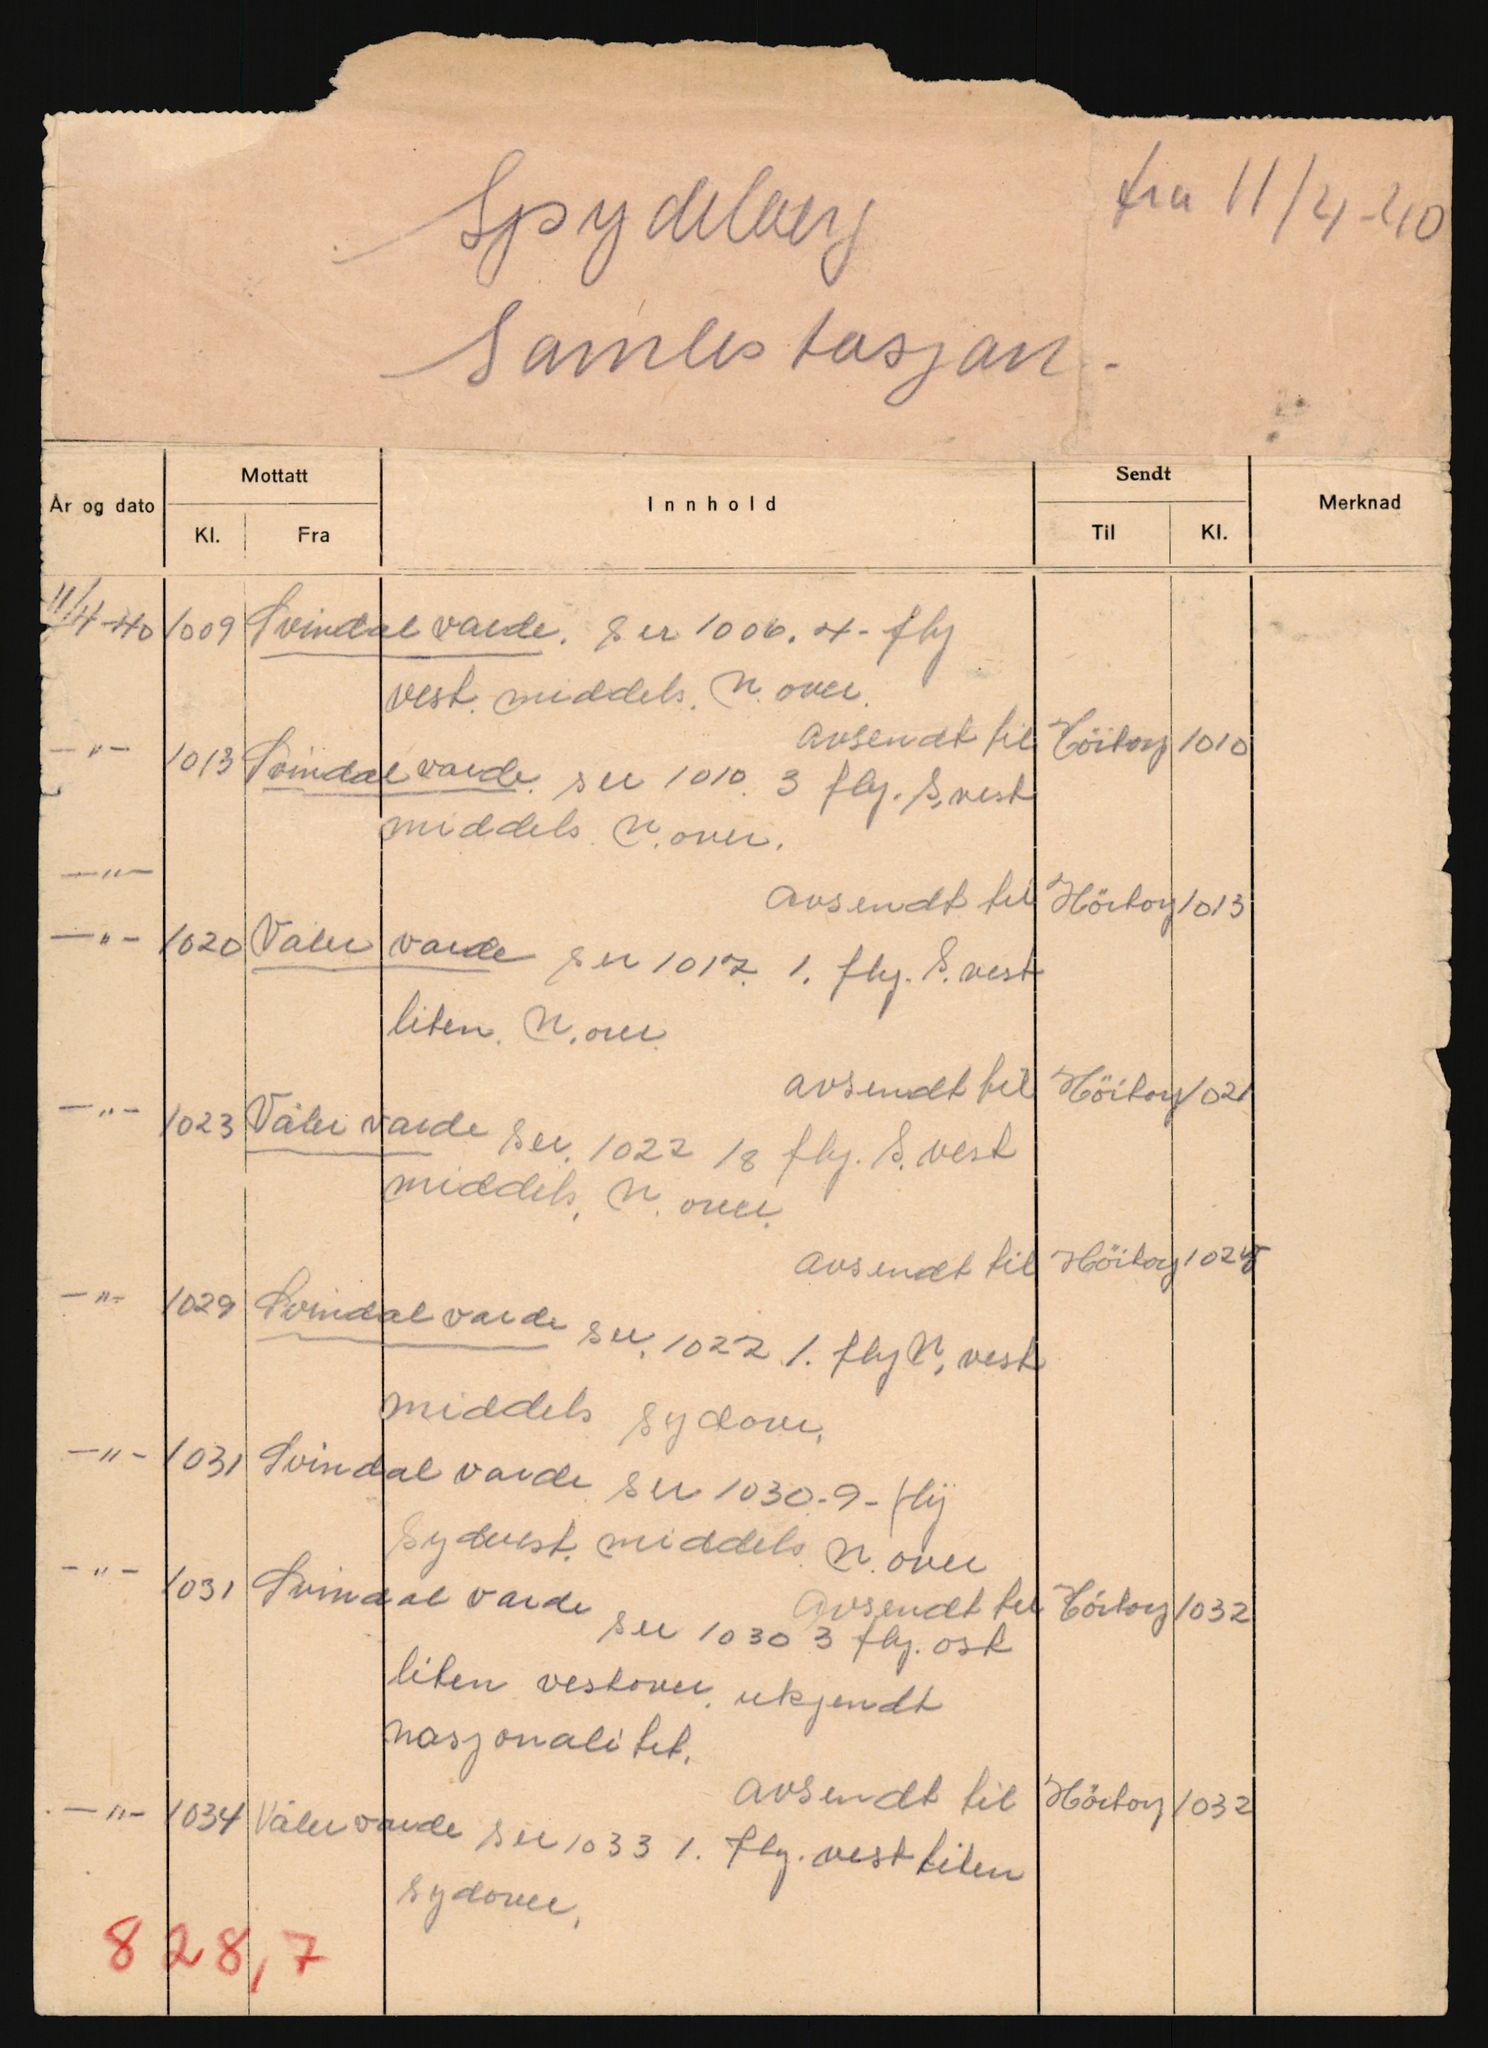 Spydeberg
fra 11/4-40
Samlestasjon.
År og dato Mottatt Innhold Sendt Merknad
Kl. Fra Til Kl.
11/4-40 1009 Svindal varde. ser 1006. 4- fly
vest. middels. N. over.
avsendt til Höitorg 1010
—"— 1013 Svindal varde. ser 1010. 3 fly. S. vest
middels. N. over.
—"—
avsendt til Höitorg 1013
—"— 1020 Våler varde ser 1017. 1. fly. S. vest
liten. N. over.
avsendt til Höitorg 1021
—"— 1023 Våler varde ser. 1022 18 fly. S. vest
middels. N. over.
avsendt til Höitorg 1024
—"— 1029 Svindal varde ser. 1027 1. fly N. vest
middels sydover.
—"— 1031 Svindal varde ser 1030-9- fly
Sydvest. middels. N. over
avsendt til Höitorg 1032
—"— 1031 Svindal varde ser 1030 3 fly. ost
liten vestover. ukjendt
nasjonalitet.
avsendt til Höitorg 1032
—"— 1034 Våler varde ser 1033 1. fly. vest liten
sydover.
828,7